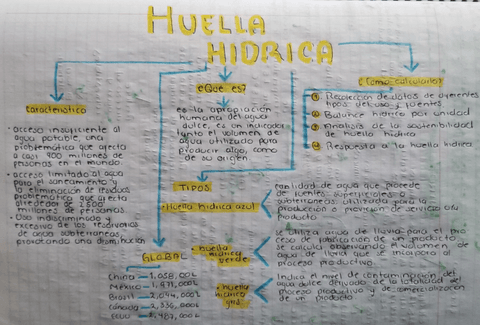 HUELLA
HIDRICA
¿Que es?
es la apropiación
humana del agua
dulce, es un indicador
tanto el volumen de
agua utilizado para
producir algo, como
de su origen
¿Como calcularlo?
① Recolección de datos de diferentes
tipos del uso y fuentes
② Balance hidrico por unidad
③ Analisis de la sostenibilidad
de huella hidrica
④ Respuesta a la huella hidrica
Caracteristica
• acceso insuficiente al
agua potable, una
problematica que afecta
a casi 900 millones de
personas en el mundo.
• acceso limitado al agua
para el saneamiento y
la eliminación de residuos
problematica que afecta
alrededor de 2,600
millones de personas.
• Uso indiscriminado y
excesivo de los
de agua subterraneas,
provocando una
TIPOS
• Huella hidrica azul
cantidad de agua que procede
de fuentes superficiales o
subterraneas utilizada para la
producción o provisión de servicio o/u
producto
• huella
hidrica
verde
se utiliza agua de lluvia para el pro
ceso de fabricación de un producto
se calcula observando el volumen de
agua de lluvia que se incorpora al
proceso productivo.
• huella
hidrica
gris
Indica el nivel de contaminación del
agua dulce derivada de la totalidad del
proceso productivo y de comercialización
de un producto.
GLOBAL
China — 1,058,00L
México — 1,971,000L
Brasil — 2,044,000L
Canada — 2,336,000L
EEUU — 2,487,000L